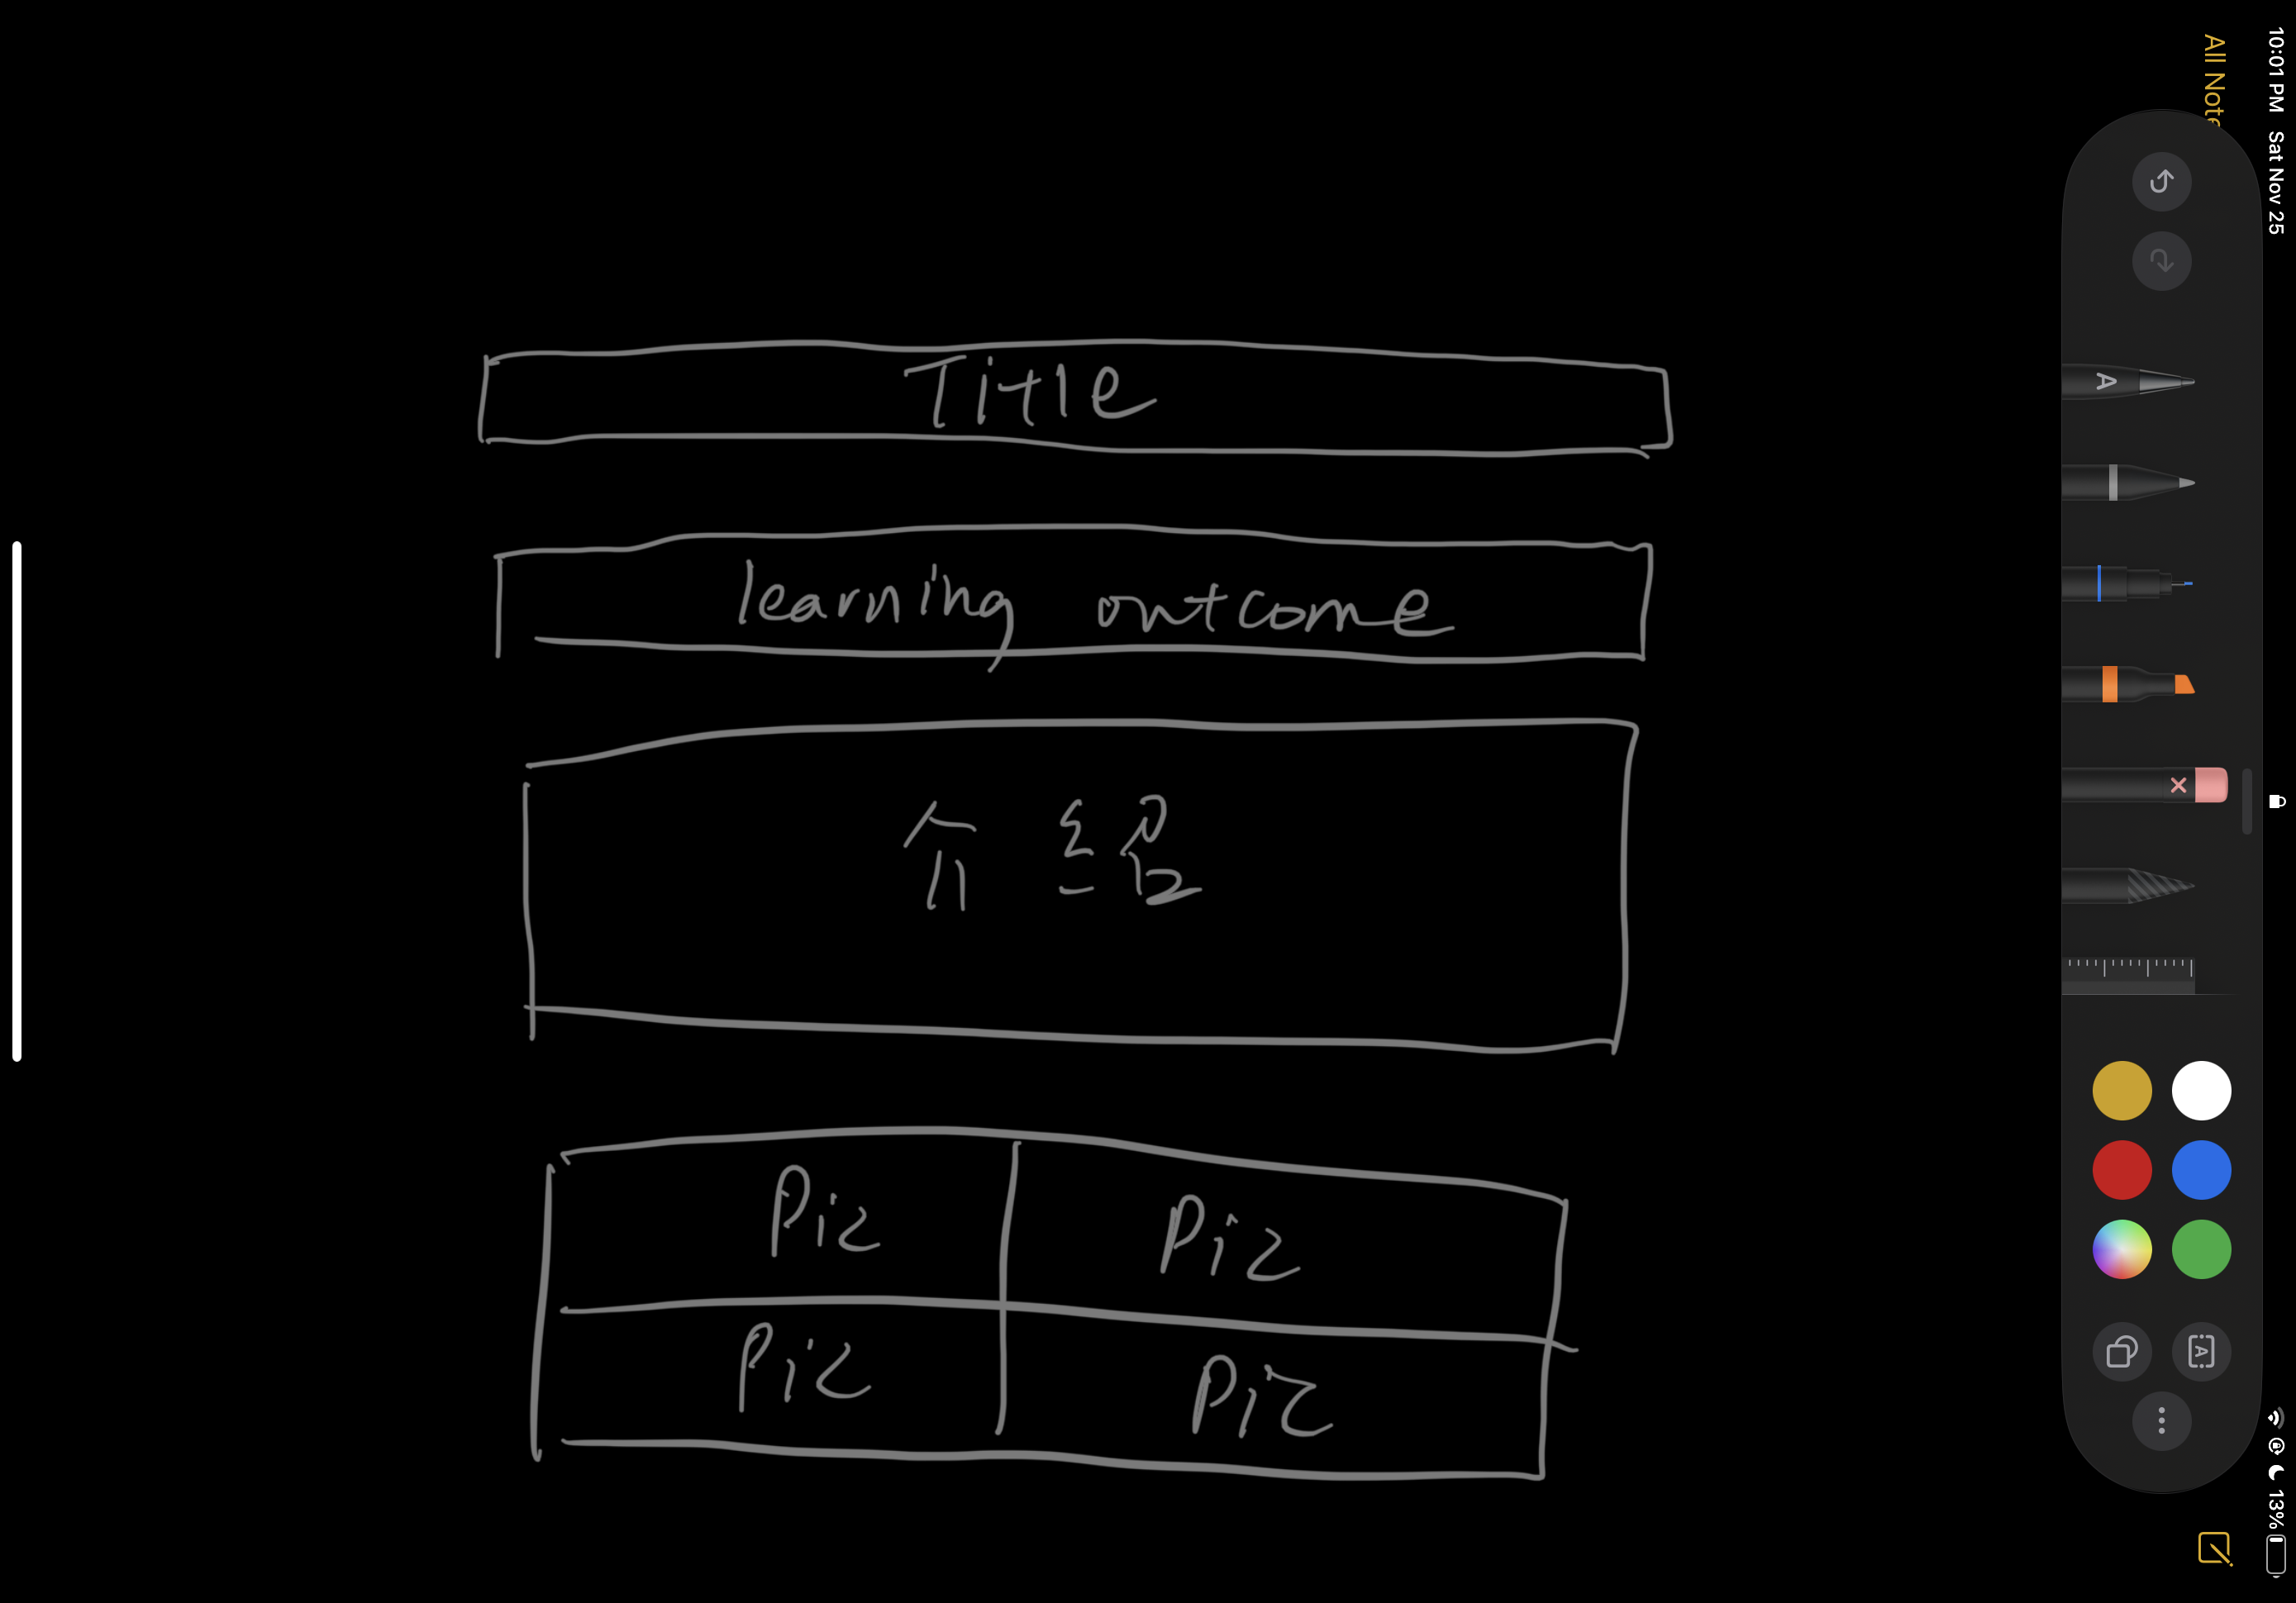 10:01 PM Sat Nov 25
13%
All Note
Title
learning outcome
介绍
Pic Pic
Pic Pic